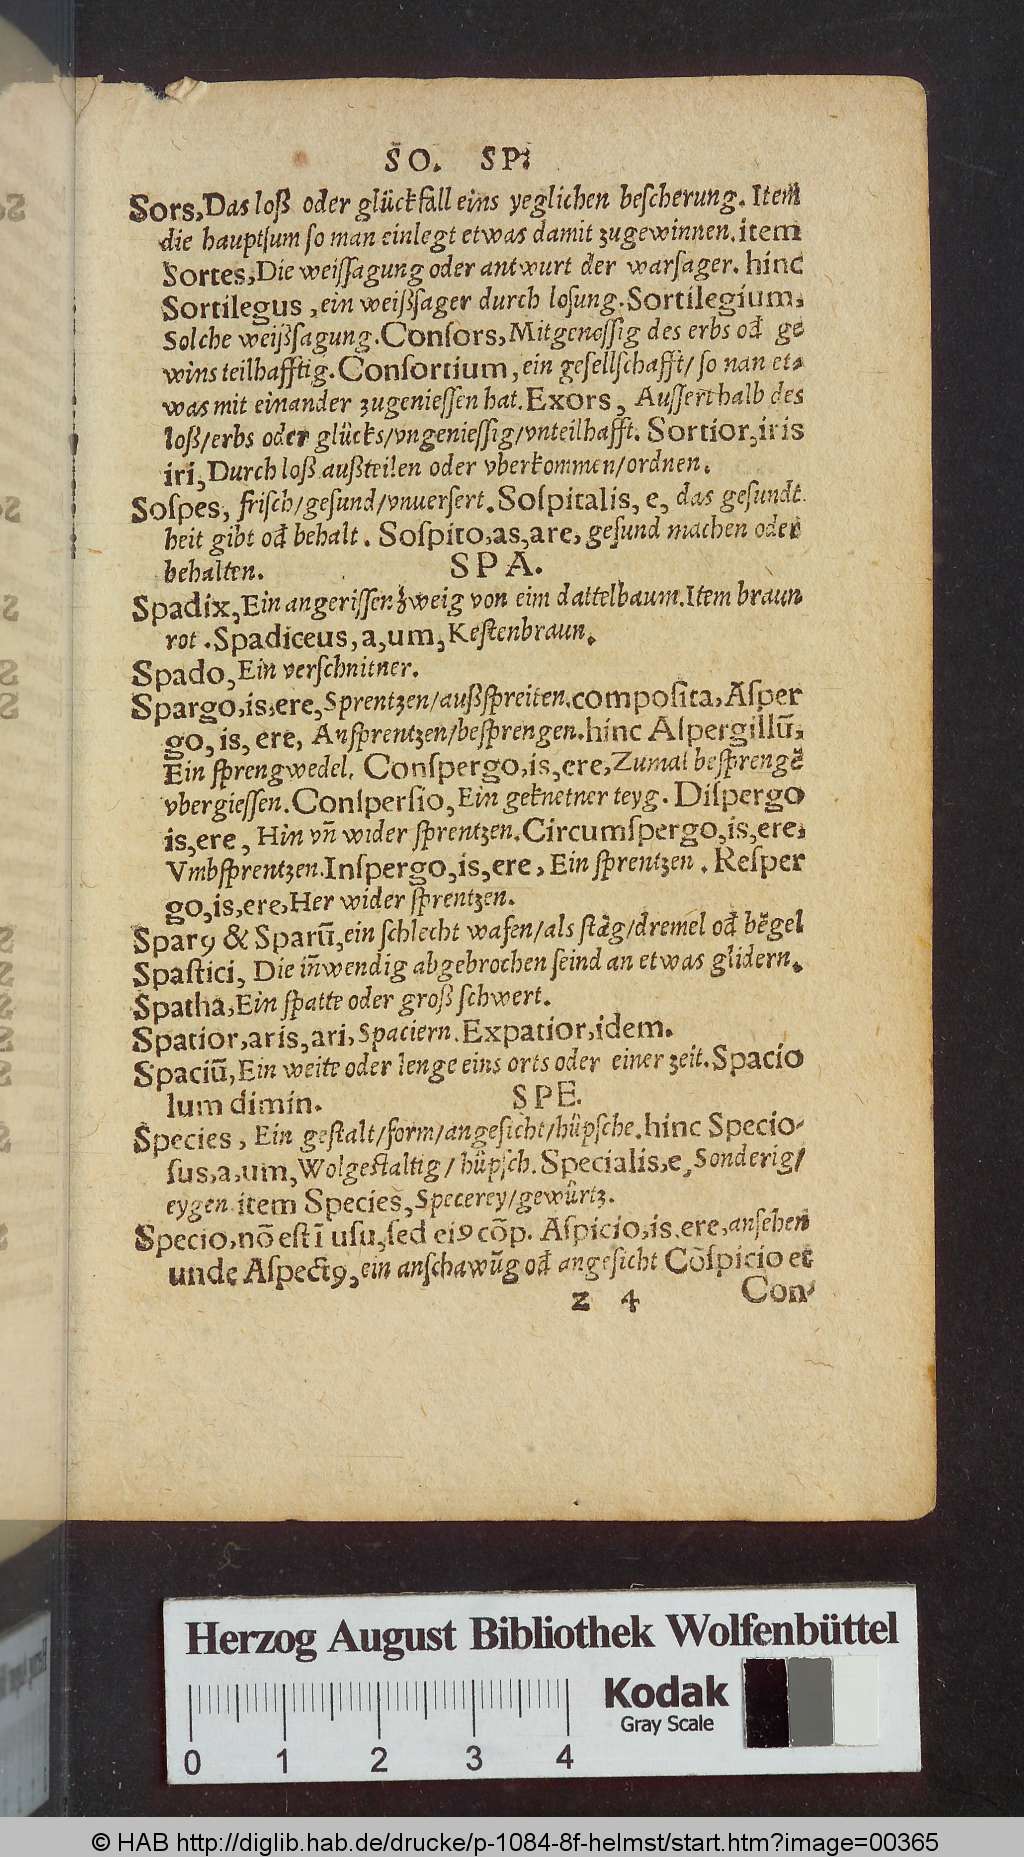 SO. SP.
Sors, Das loß oder glückfall eins yeglichen bescherung. Item
die hauptsum so man einlegt etwas damit zugewinnen. item
Sortes, Die weissagung oder antwurt der warsager. hinc
Sortilegus, ein weißsager durch losung. Sortilegium,
Solche weißsagung. Consors, Mitgenossig des erbs od̃ ge
wins teilhafftig. Consortium, ein gesellschafft/ so nan et-
was mit einander zugeniessen hat. Exors, Ausserthalb des
loß/erbs oder glücks/vngeniessig/vnteilhafft. Sortior, iris
iri, Durch loß außteilen oder vberkommen/ordnen.
Sospes, frisch/gesund/vnuersert. Sospitalis, e, das gesundt
heit gibt od̃ behalt. Sospito, as, are, gesund machen oder
behalten.
SPA.
Spadix, Ein angerissen zweig von eim dattelbaum. Item braun
rot. Spadiceus, a, um, Kestenbraun.
Spado, Ein verschnitner.
Spargo, is, ere, Sprentzen/außspreiten. composita, Asper
go, is, ere, Ansprentzen/besprengen. hinc Aspergillũ,
Ein sprengwedel. Conspergo, is, ere, Zumal besprengẽ
vbergiessen. Conspersio, Ein geknetner teyg. Dispergo
is, ere, Hin vñ wider sprentzen. Circumspergo, is, ere,
Vmbsprentzen. Inspergo, is, ere, Ein sprentzen. Resper
go, is, ere, Her wider sprentzen.
Sparꝰ & Sparũ, ein schlecht wafen/als stãg/dremel od̃ bẽgel
Spastici, Die iñwendig abgebrochen seind an etwas glidern.
Spatha, Ein spatte oder groß schwert.
Spatior, aris, ari, Spaciern. Expatior, idem.
Spaciũ, Ein weite oder lenge eins orts oder einer zeit. Spacio
lum dimin.
SPE.
Species, Ein gestalt/form/angesicht/hüpsche. hinc Specio-
sus, a, um, Wolgestaltig/ hüpsch. Specialis, e, Sonderig/
eygen. item Species, Specerey/gewürtz.
Specio, nõ est ĩ usu, sed eiꝰ cõp. Aspicio, is, ere, ansehen
unde Aspectꝰ, ein anschawũg od̃ angesicht Cõspicio et
z 4 Con-
Herzog August Bibliothek Wolfenbüttel
Kodak
Gray Scale
0 1 2 3 4
© HAB http://diglib.hab.de/drucke/p-1084-8f-helmst/start.htm?image=00365